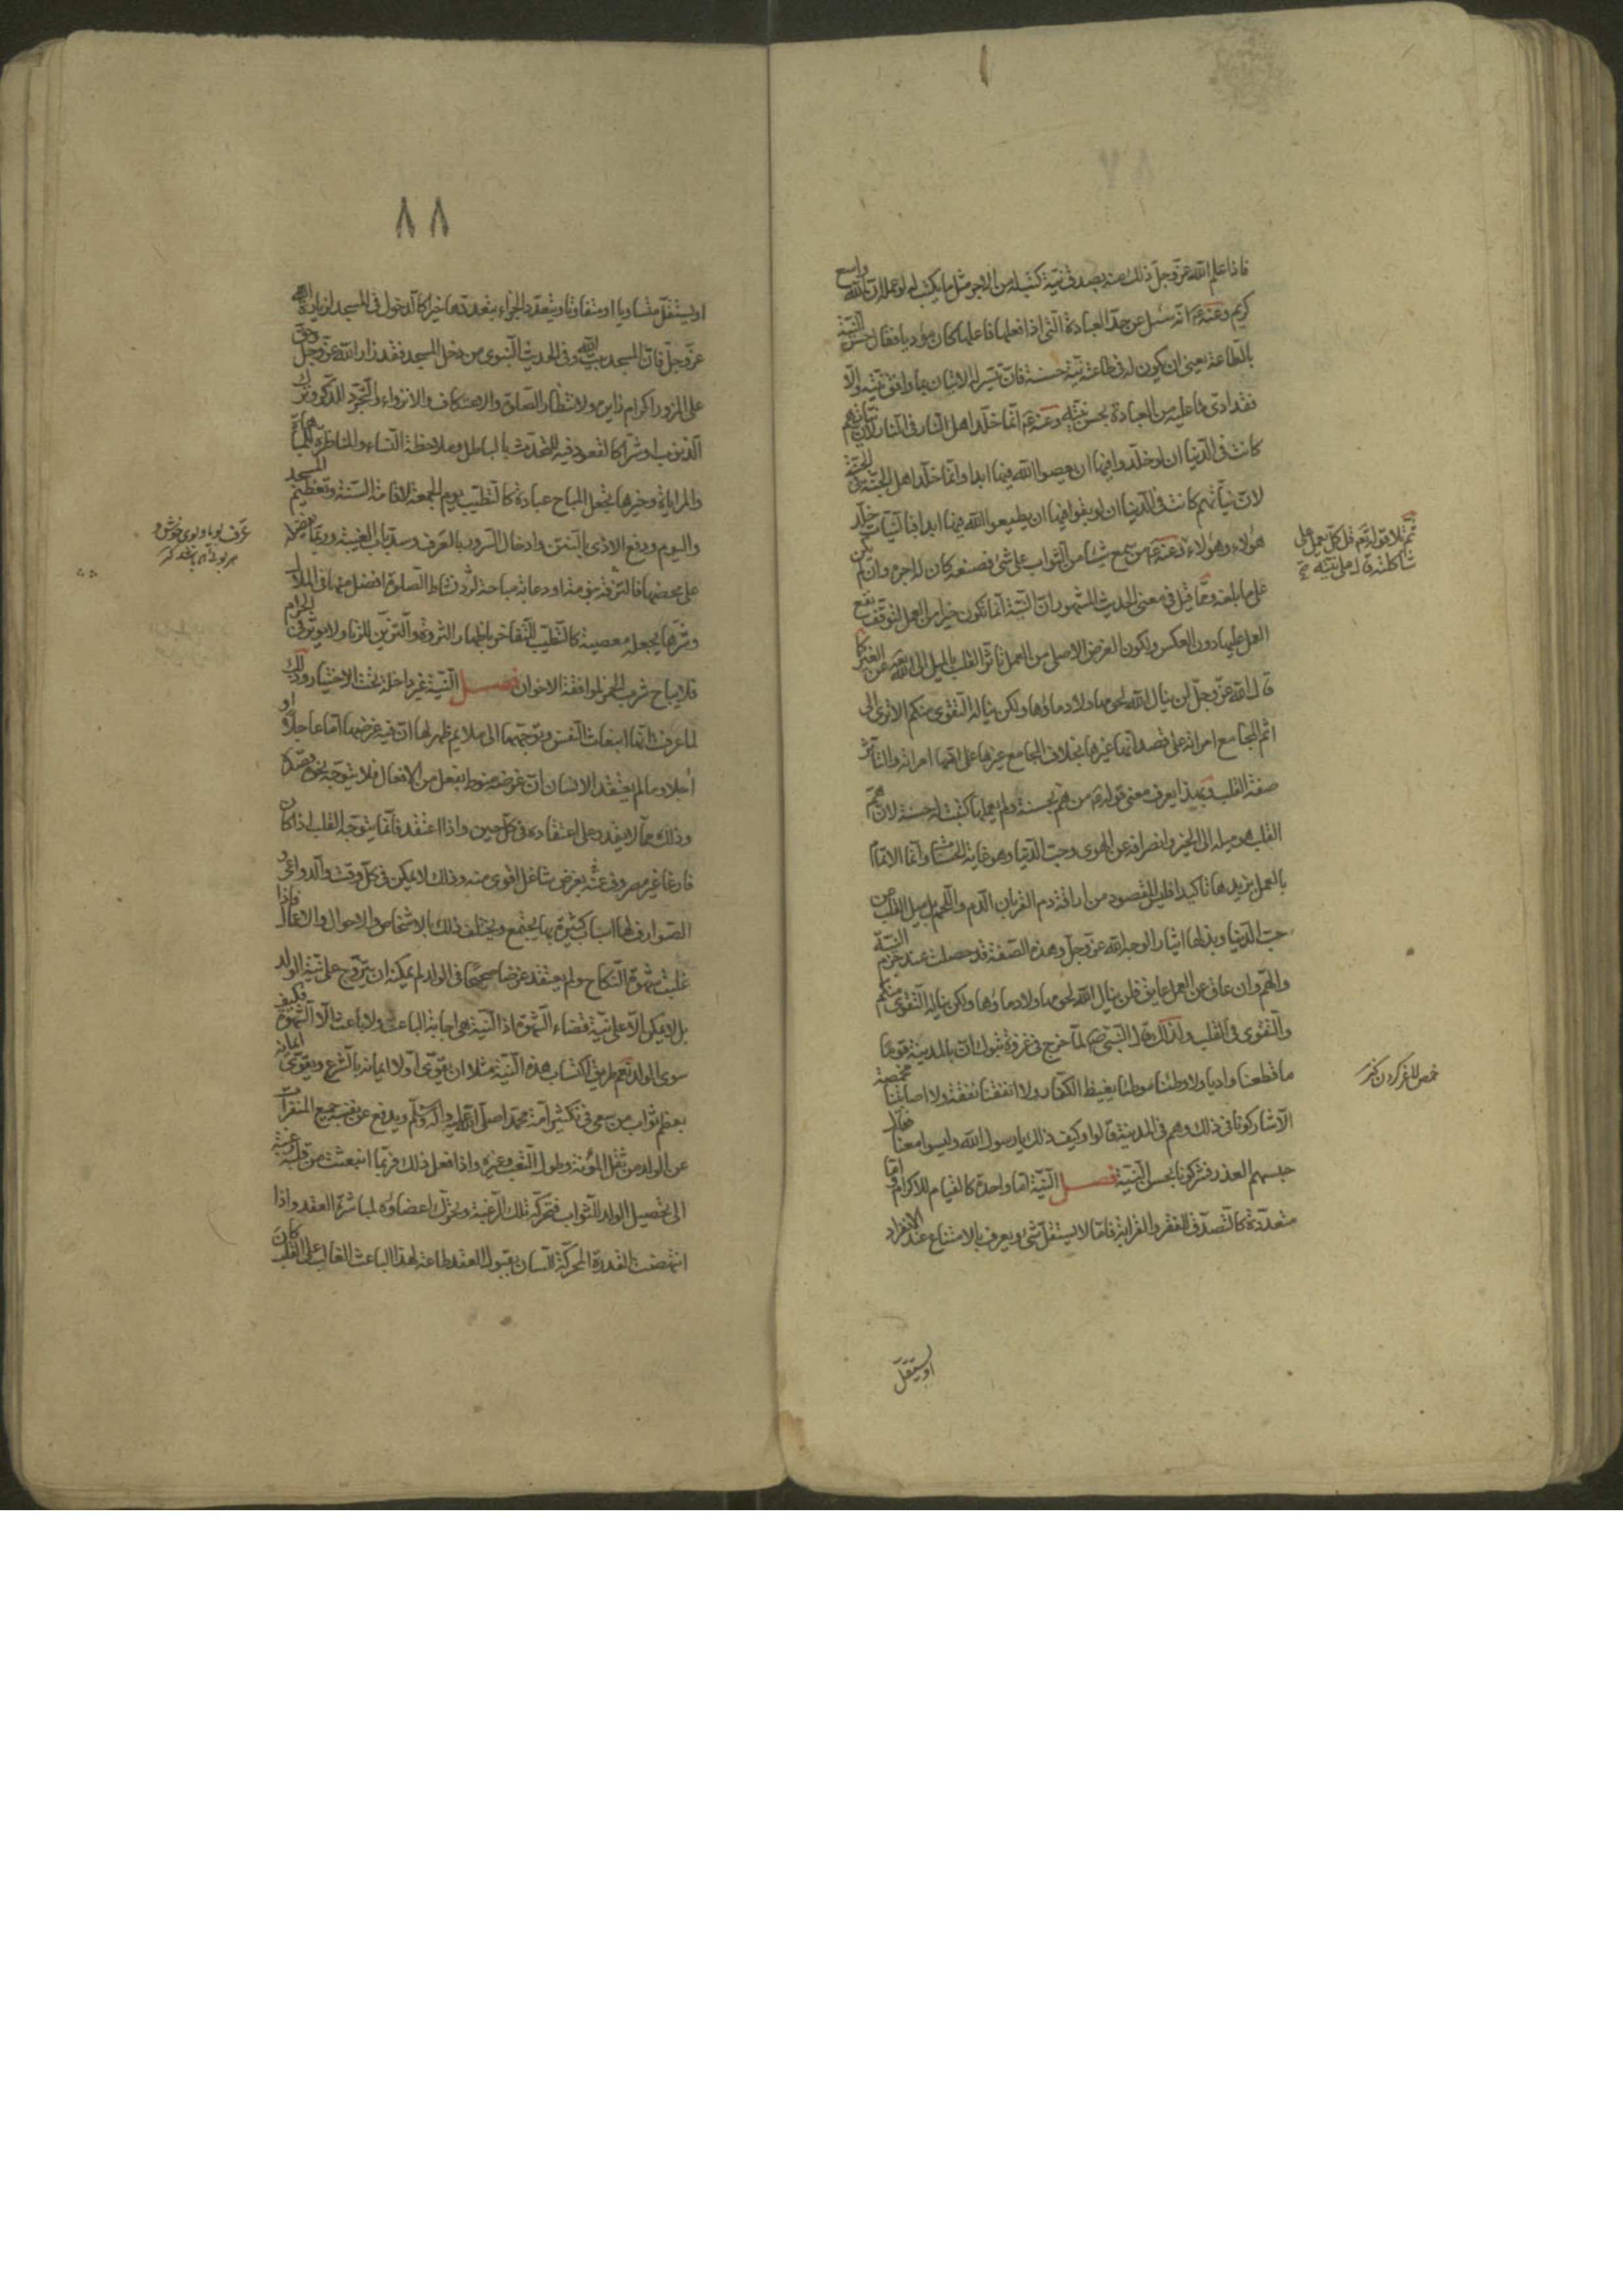 فاذا علم الله عزّ وجلّ ذلك منه بصدق نيّة كتب له من الاجر مثل ما يكتب له لو عمله ان الله واسع
كريم وعنه ع م انه سئل عن حدّ العبادة الّتي اذا فعلها فاعلها كان مؤديا فقال حسن النيّة
بالطّاعة يعنى ان يكون له في طاعته نيّة حسنة فان تيسّر له الاتيان بما وافق نيّته والّا
فقد ادّى ما عليه من العبادة بحسن نيّته وعنه ع م انّما خلّد اهل النّار في النّار لانّ نيّاتهم
كانت في الدّنيا ان لو خلّدوا فيها ان يعصوا الله فيها ابدا وانّما خلّد اهل الجنّة في الجنّة
لانّ نيّاتهم كانت في الدّنيا ان لو بقوا فيها ان يطيعوا الله فيها ابدا فبالنّيّات خلّد
هؤلاء وهؤلاء وعنه ع م من سمع شيئا من الثّواب على شئ فصنعه كان له اجره وان لم يكن
على ما بلغه وممّا قيل في معنى الحديث المشهور انّ النيّة انّما تكون خيرا من العمل لتوقّف نفع
العمل عليها دون العكس ولكون الغرض الاصلى من العمل تاثّر القلب بالميل الى الله تعالى عن الغير كما
قال الله عزّ وجلّ لن ينال الله لحومها ولا دماؤها ولكن يناله التّقوى منكم الا ترى الى
اثم المجامع امراته على قصد انها غيرها بخلاف المجامع غيرها على انّها امراته والتّاثّر
صفة القلب وبهذا يعرف معنى قوله ع م من همّ بحسنة ولم يعملها كتبت له حسنة لانّ همّ
القلب هو ميله الى الخير وانصرافه عن الهوى وحبّ الدّنيا وهو غاية الحسنات وانّما الاتمام
بالعمل يزيدها تاكيدا فليس المقصود من اراقة دم القربان الدّم واللّحم بل ميل القلب عن
حبّ الدّنيا وبذلها ايثارا لوجه الله عزّ وجلّ وهذه الصّفة قد حصلت عند جزم النيّة
والهمّ وان عاق عن العمل عايق فلن ينال الله لحومها ولا دماؤها ولكن يناله التّقوى منكم
والتّقوى في القلب ولذلك قال النّبيّ ص لمّا خرج في غزوة تبوك انّ بالمدينة قوما
ما قطعنا واديا ولا وطئنا موطئا يغيظ الكفّار ولا انفقنا نفقة ولا اصابتنا مخمصة
الّا شاركونا في ذلك وهم في المدينة قالوا وكيف ذلك يا رسول الله وليسوا معنا فقال
حبسهم العذر فشركونا بحسن النّيّة فصـــل النّيّة امّا واحدة كالقيام للاكرام وامّا
متعدّدة كالتّصدّق للفقر والقرابة فامّا لا يستقلّ شئ ويعرف بالامتناع عند الانفراد
او يستقلّ
ثمّ تلا قوله تع قل كلّ يعمل على
شاكلته قال على نيّته صح
خمص لاغر كردن
٨٨
او يستقلّ متساويا او متفاوتا ويتعدّد الجزاء بتعدّدها خيرا كالدّخول في المسجد لزيارة الله
عزّ وجلّ فانّ المسجد بيت الله وفى الحديث النّبوى من دخل المسجد فقد زار الله عزّ وجلّ وحقّ
على المزور اكرام زايره ولانتظار الصّلوة والاعتكاف والانزواء والتّجرّد للذّكر وترك
الذّنوب او شرّا كالقعود فيه للتّحدّث بالباطل وملاحظة النّساء والمناظرة للمباهاة
والمراياة وخيرها يجعل المباح عبادة كالتّطيّب يوم الجمعة لاقامة السّنّة وتعظيم المسجد
واليوم ودفع الاذى بالنّتن وادخال السّرور بالعرف وسدّ باب الغيبة وربّما يفضل
على محضها فالتّرفّه بنومة او دعابة مباحة لردّ نشاط الصّلوة افضل منها في الملال
وشرّها يجعله معصية كالتّطيّب للتّفاخر باظهار الثّروة والتّزيّن للزّنا ولا يؤثّر في الحرام
فلا يباح شرب الخمر لموافقة الاخوان فصـــل النّيّة غير داخلة تحت الاختيار وذلك
لما عرفت انّها انبعاث النّفس وتوجّهها الى ما لايم ظهر لها انّ فيه غرضها امّا عاجلا او
آجلا وما لم يعتقد الانسان انّ غرضه منوط بفعل من الافعال فلا يتوجّه نحوه قصده
وذلك ممّا لا يقدر على اعتقاده في كلّ حين واذا اعتقد فانّما يتوجّه القلب اذا كان
فارغا غير مصروف عنه بغرض شاغل اقوى منه وذلك لا يمكن في كلّ وقت والدّواعى و
الصّوارف لها اسباب كثيرة بها يجتمع ويختلف ذلك بالاشخاص والاحوال والاعمال فاذا
غلبت شهوة النّكاح ولم يعتقد غرضا صحيحا في الولد لم يمكنه ان يتزوّج على نيّة الولد
بل لا يمكن الّا على نيّة قضاء الشّهوة اذ النّيّة هى اجابة الباعث ولا باعث الّا الشّهوة فكيف
ينوى الولد نعم طريق اكتساب هذه النّيّة مثلا ان يقوّى اوّلا ايمانه بالشّرع ويقوّى ايمانه
بعظم ثواب من سعى في تكثير امّة محمّد صلّى الله عليه وآله وسلّم ويدفع عن نفسه جميع المنفرات
عن الولد من ثقل المؤنة وطول التّعب وغيره واذا فعل ذلك فربّما انبعثت من قلبه رغبة
الى تحصيل الولد للثّواب فتحركه تلك الرّغبة وتحرّك اعضاؤه لمباشرة العقد واذا
انتهضت القدرة المحرّكة للّسان بقبول العقد طاعة لهذا الباعث الغالب على القلب كان
عرف بوى خوش